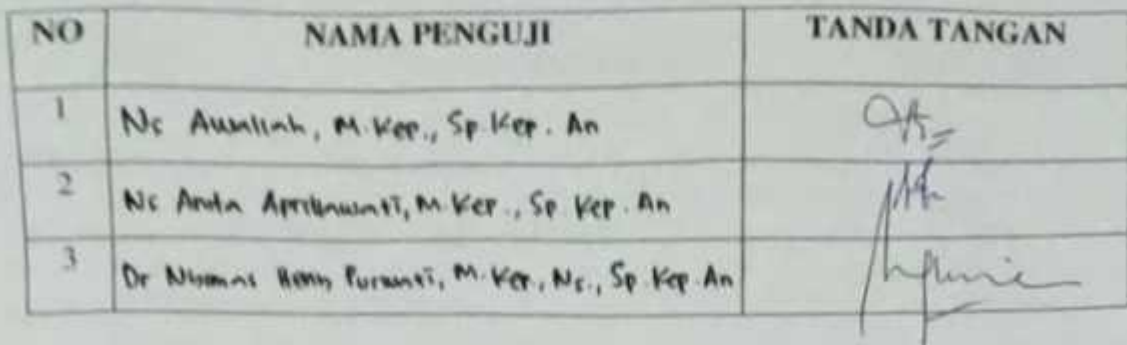 NO NAMA PENGUJI TANDA TANGAN
1 Ns Awaliah, M.Kep., Sp.Kep. An
2 Ns Anita Apriliawati, M.Kep., Sp.Kep. An
3 Dr Nyimas Heny Purwanti, M.Kep, Ns., Sp.Kep.An